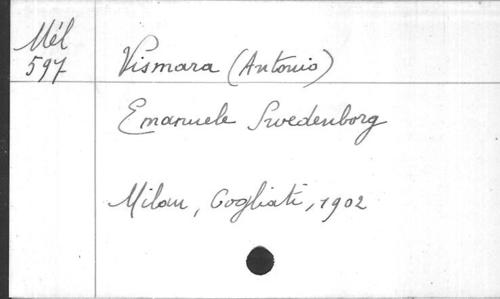 Mél
597
Vismara (Antonio)
Emanuele Swedenborg
Milan, Cogliati, 1902